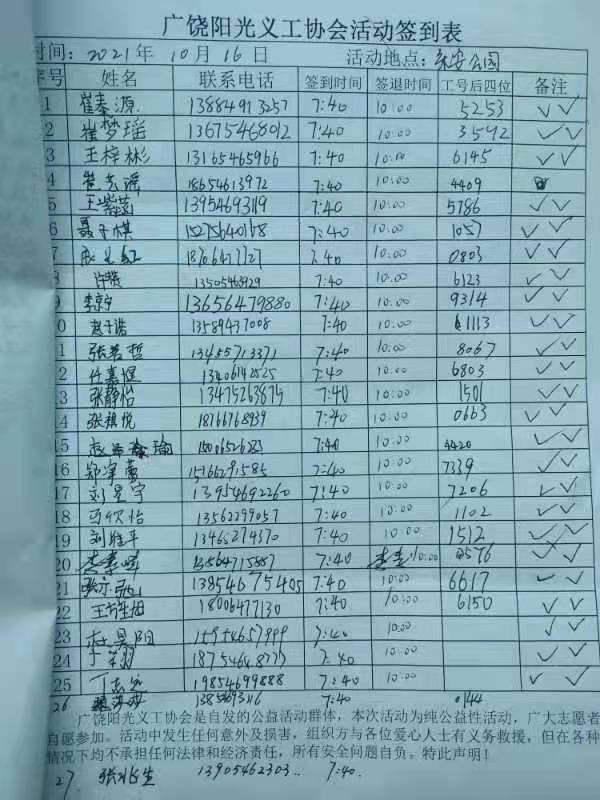 广饶阳光义工协会活动签到表
时间：2021年10月16日 活动地点：乐安公园
序号 姓名 联系电话 签到时间 签退时间 工号后四位 备注
1 崔秦源 13884913257 7:40 10:00 5253 ✓✓
2 崔梦瑶 13675468012 7:40 10:00 3592 ✓✓
3 王梓彬 13165465966 7:40 10:00 6145 ✓✓
4 18654613972 7:40 10:00 4409
5 王紫菡 13954693119 7:40 10:00 5786 ✓✓
6 7:40 10:00 1057 ✓✓
7 7:40 10:00 0803 ✓✓
8 许赞 13505468929 7:40 10:00 6123 ✓✓
9 李京宁 13656479880 7:40 10:00 9314 ✓✓
10 赵子诺 13589437008 7:40 10:00 1113 ✓✓
11 张若哲 13455713371 7:40 10:00 8067 ✓✓
12 任嘉恒 13406142525 7:40 10:00 6803 ✓✓
13 张静怡 13475263875 7:40 10:00 1501 ✓✓
14 张祺悦 18766768939 7:40 10:00 0663 ✓✓
15 7:40 10:00 4420 ✓✓
16 15166291585 7:40 10:00 7339 ✓✓
17 刘昱宇 13954692260 7:40 10:00 7206 ✓✓
18 马欣怡 13562299057 7:40 10:00 1102 ✓✓
19 刘胜平 13465274370 7:40 10:00 1512 ✓✓
20 7:40 10:00 0576 ✓✓
21 13854675405 7:40 10:00 6617 ✓✓
22 18006477130 7:40 10:00 6150 ✓✓
23 杜昊阳 7:40 10:00 ✓✓
24 7:40 10:00 ✓✓
25 19854699888 7:40 10:00 ✓✓
26 13854693116 7:40 0144
广饶阳光义工协会是自发的公益活动群体，本次活动为纯公益性活动，广大志愿者
自愿参加。活动中发生任何意外及损害，组织方与各位爱心人士有义务救援，但在各种
情况下均不承担任何法律和经济责任，所有安全问题自负。特此声明！
27 13905462303 7:40